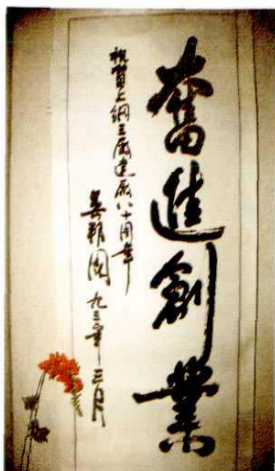 奮進創業
祝賀上鋼三廠建厰八十周年
吴邦國 九三年三月